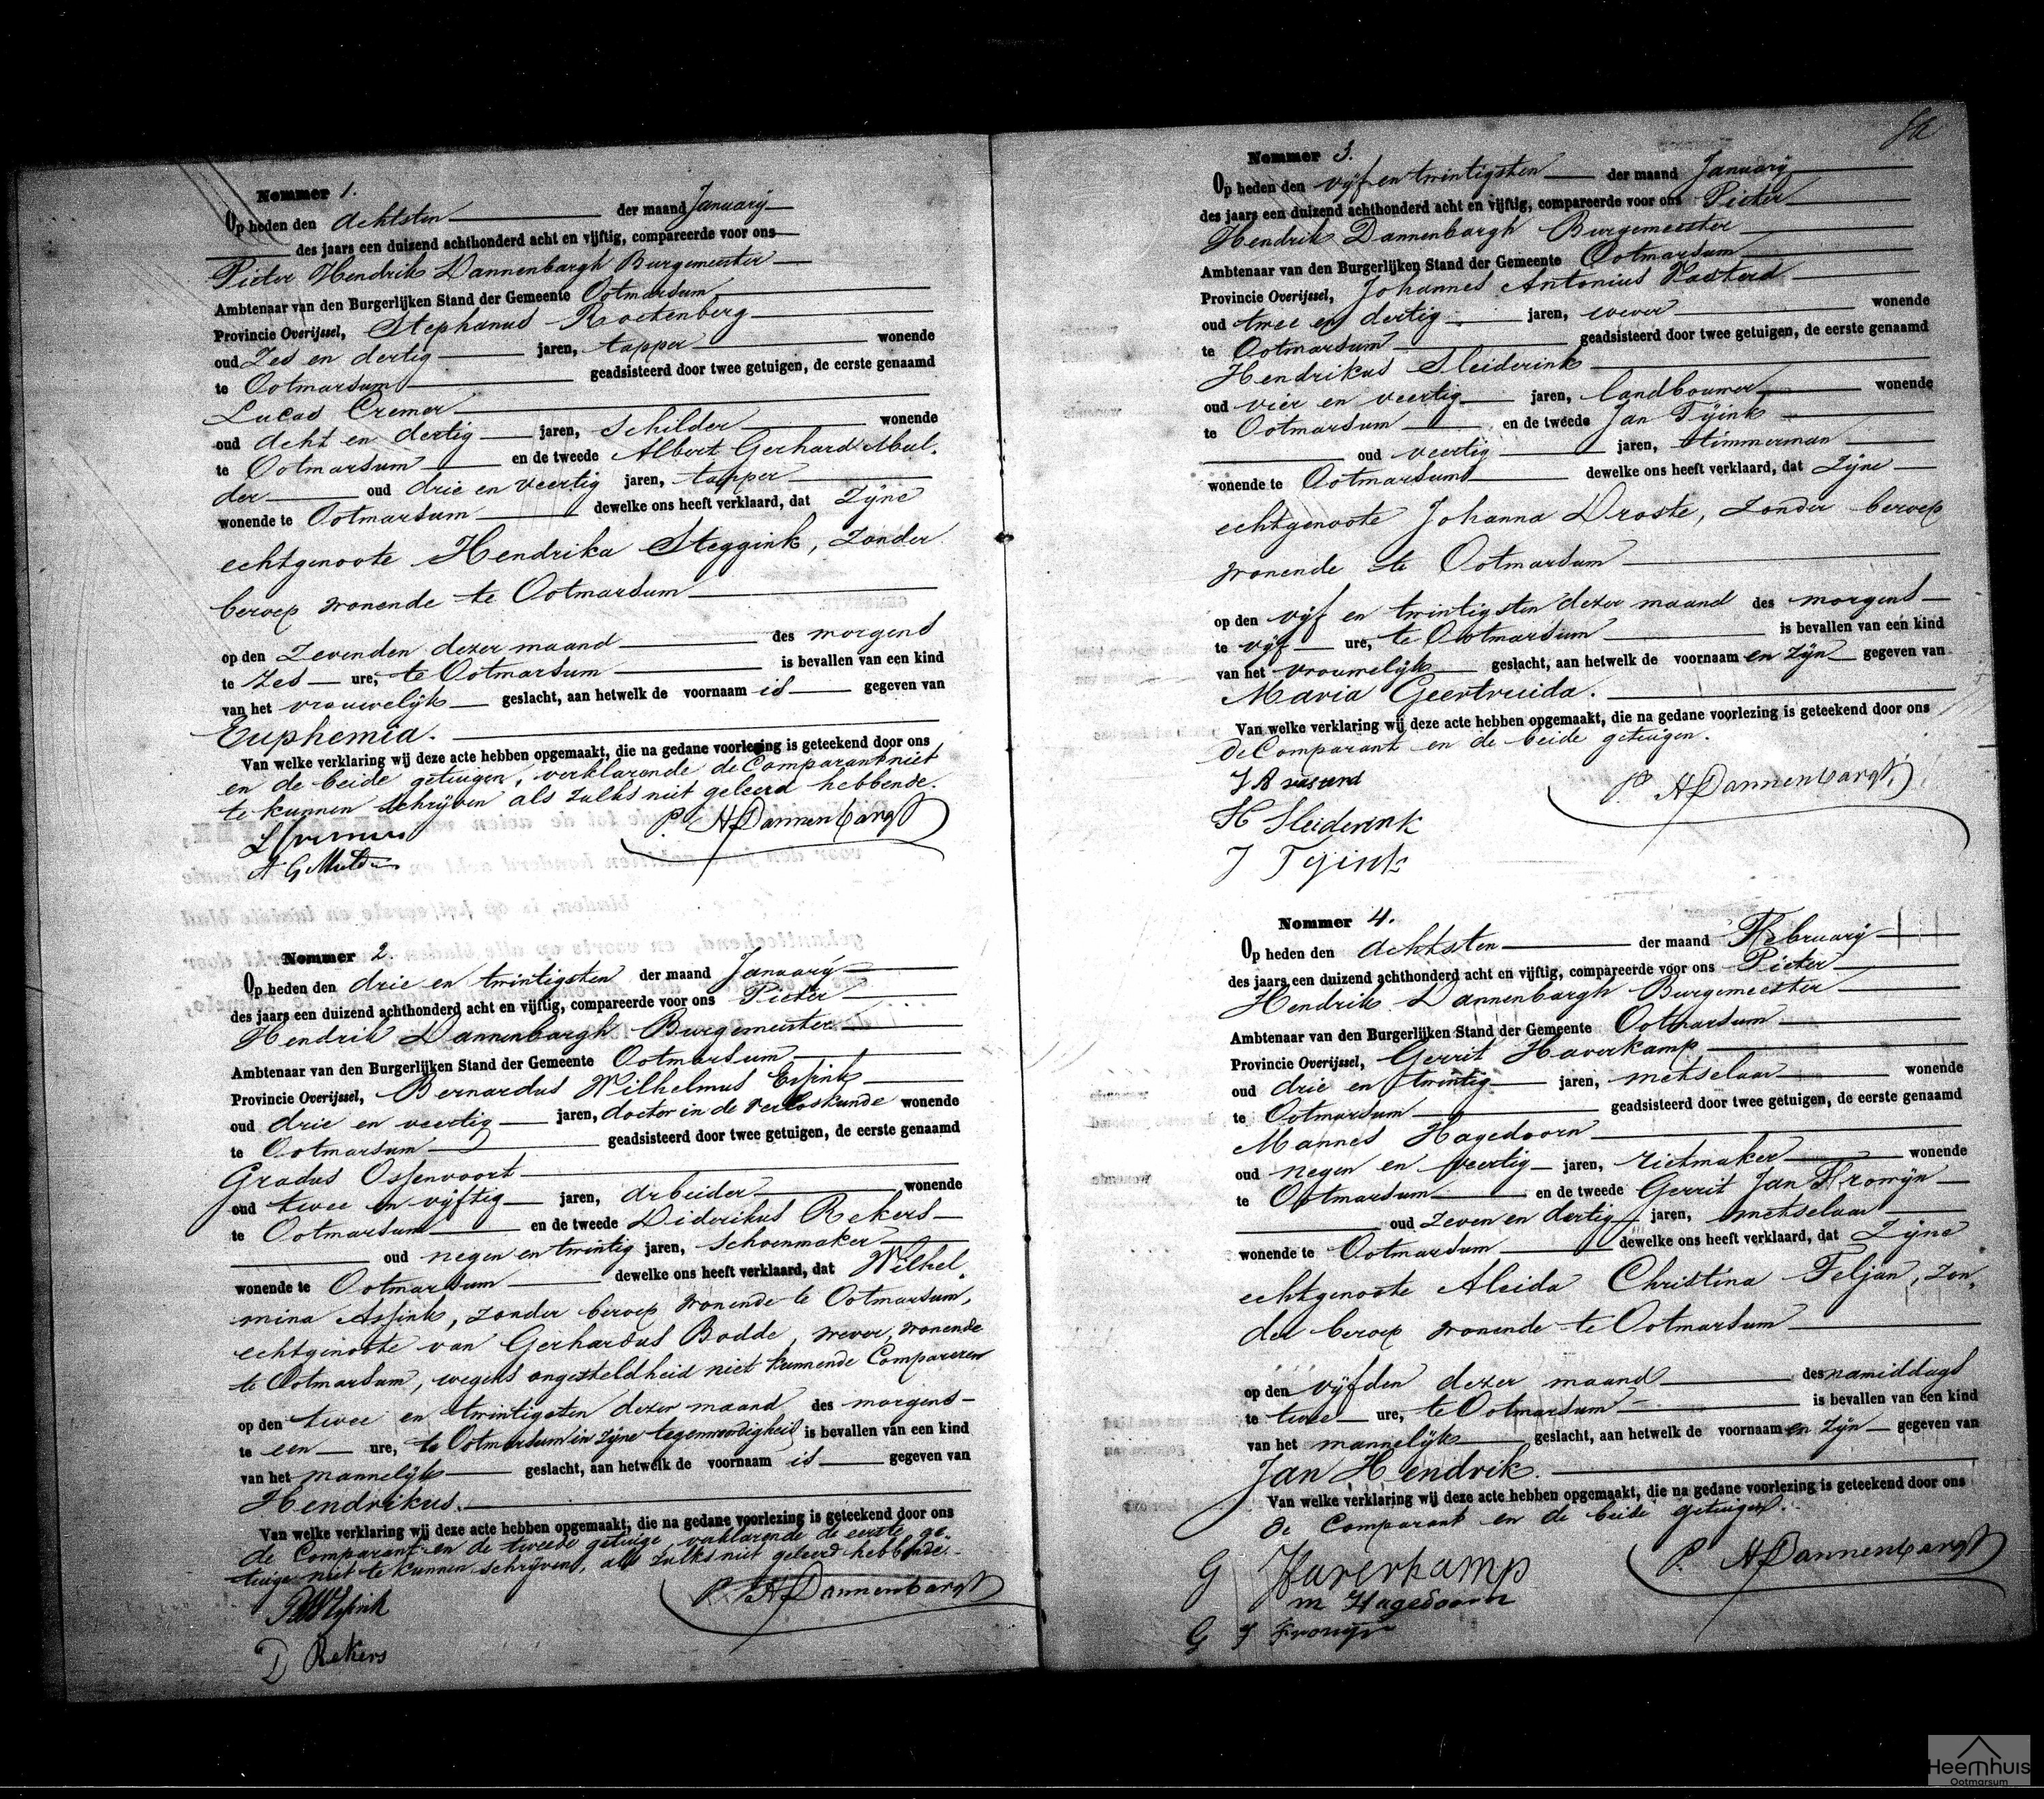 Nommer 1.
Op heden den achtsten der maand Januarij
des jaars een duizend achthonderd acht en vijftig, compareerde voor ons
Pieter Hendrik Dannenbargh Burgemeester
Ambtenaar van den Burgerlijken Stand der Gemeente Ootmarsum
Provincie Overijssel, Stephanus
oud Zes en dertig jaren, tapper wonende
te Ootmarsum geadsisteerd door twee getuigen, de eerste genaamd
Lucas Cremer
oud acht en dertig jaren, Schilder wonende
te Ootmarsum en de tweede Albert Gerhard Mul-
der oud drie en veertig jaren, tapper
wonende te Ootmarsum dewelke ons heeft verklaard, dat Zijne
echtgenoote Hendrika Steggink, Zonder
beroep wonende te Ootmarsum
op den Zevenden dezer maand des morgens
te Zes ure, te Ootmarsum is bevallen van een kind
van het vrouwelijk geslacht, aan hetwelk de voornaam is gegeven van
Euphemia.
Van welke verklaring wij deze acte hebben opgemaakt, die na gedane voorlezing is geteekend door ons
en de beide getuigen, verklarende de Comparant niet
te kunnen schrijven als zulks niet geleerd hebbende.
L Cremer
P. H Dannenbargh
A G Mulder
Nommer 2.
Op heden den drie en twintigsten der maand Januarij
des jaars een duizend achthonderd acht en vijftig, compareerde voor ons Pieter
Hendrik Dannenbargh Burgemeester
Ambtenaar van den Burgerlijken Stand der Gemeente Ootmarsum
Provincie Overijssel, Bernardus Wilhelmus Essink
oud drie en veertig jaren, doctor in de verloskunde wonende
te Ootmarsum geadsisteerd door twee getuigen, de eerste genaamd
Gradus Ossenvoort
oud twee en vijftig jaren, arbeider wonende
te Ootmarsum en de tweede Diderikus Rekers
oud negen en twintig jaren, Schoenmaker
wonende te Ootmarsum dewelke ons heeft verklaard, dat Wilhel-
mina Assink, zonder beroep wonende te Ootmarsum,
echtgenoote van Gerhardus Bodde, wever, wonende
te Ootmarsum, wegens ongesteldheid niet kunnende Compareren
op den twee en twintigsten dezer maand des morgens
te een ure, te Ootmarsum in zijne tegenwoordigheid is bevallen van een kind
van het mannelijk geslacht, aan hetwelk de voornaam is gegeven van
Hendrikus.
Van welke verklaring wij deze acte hebben opgemaakt, die na gedane voorlezing is geteekend door ons
de Comparant en de tweede getuige verklarende de eerste ge-
tuige niet te kunnen schrijven, als zulks niet geleerd hebbende.
BW Essink
P. H Dannenbargh
D Rekers
Nommer 3.
Op heden den vijf en twintigsten der maand Januarij
des jaars een duizend achthonderd acht en vijftig, compareerde voor ons Pieter
Hendrik Dannenbargh Burgemeester
Ambtenaar van den Burgerlijken Stand der Gemeente Ootmarsum
Provincie Overijssel, Johannes Antonius Vasterd
oud twee en dertig jaren, wever wonende
te Ootmarsum geadsisteerd door twee getuigen, de eerste genaamd
Hendrikus Sleiderink
oud vier en veertig jaren, landbouwer wonende
te Ootmarsum en de tweede Jan Tijink
oud veertig jaren, timmerman
wonende te Ootmarsum dewelke ons heeft verklaard, dat Zijne
echtgenoote Johanna Droste, zonder beroep
wonende te Ootmarsum
op den vijf en twintigsten dezer maand des morgens
te vijf ure, te Ootmarsum is bevallen van een kind
van het vrouwelijk geslacht, aan hetwelk de voornaam en zijn gegeven van
Maria Geertruida.
Van welke verklaring wij deze acte hebben opgemaakt, die na gedane voorlezing is geteekend door ons
de Comparant en de beide getuigen.
J A
P. H Dannenbargh
H Sleiderink
J Tijink
Nommer 4.
Op heden den achtsten der maand February
des jaars een duizend achthonderd acht en vijftig, compareerde voor ons Pieter
Hendrik Dannenbargh Burgemeester
Ambtenaar van den Burgerlijken Stand der Gemeente Ootmarsum
Provincie Overijssel, Gerrit Haverkamp
oud drie en twintig jaren, metselaar wonende
te Ootmarsum geadsisteerd door twee getuigen, de eerste genaamd
Mannes Hagedoorn
oud negen en veertig jaren, rietmaker wonende
te Ootmarsum en de tweede Gerrit Jan Fromijn
oud zeven en dertig jaren, metselaar
wonende te Ootmarsum dewelke ons heeft verklaard, dat Zijne
echtgenoote Aleida Christina Feljan, zon-
der beroep wonende te Ootmarsum
op den vijfden dezer maand des namiddags
te twee ure, te Ootmarsum is bevallen van een kind
van het mannelijk geslacht, aan hetwelk de voornaam en zijn gegeven van
Jan Hendrik.
Van welke verklaring wij deze acte hebben opgemaakt, die na gedane voorlezing is geteekend door ons
de Comparant en de beide getuigen.
G Haverkamp
P. H Dannenbargh
m Hagedoorn
G J Fromijn
Heemhuis
Ootmarsum